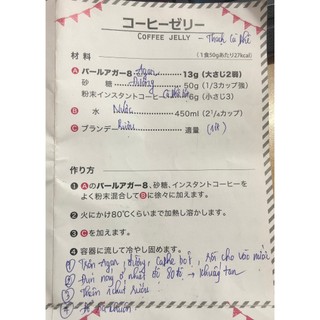 コーヒーゼリー
COFFEE JELLY - Thạch Cà phê
材料 (1食50gあたり27kcal)
A パールアガー8 Agar 13g (大さじ2弱)
砂糖 Đường 50g (1/3カップ強)
粉末インスタントコーヒー 6g (小さじ3)
B 水 Nước 450ml (2¼カップ)
C ブランデー Rượu 適量 (ít)
作り方
1 Aのパールアガー8、砂糖、インスタントコーヒーを
よく粉末混合してBに徐々に加えます。
2 火にかけ80℃くらいまで加熱し溶かします。
3 Cを加えます。
4 容器に流して冷やし固めます。
① Trộn agar, đường, cafe bột, rồi cho vào nước
② Đun này ở nhiệt độ 80 độ → khuấy tan
③ Thêm chút rượu
④ khuôn